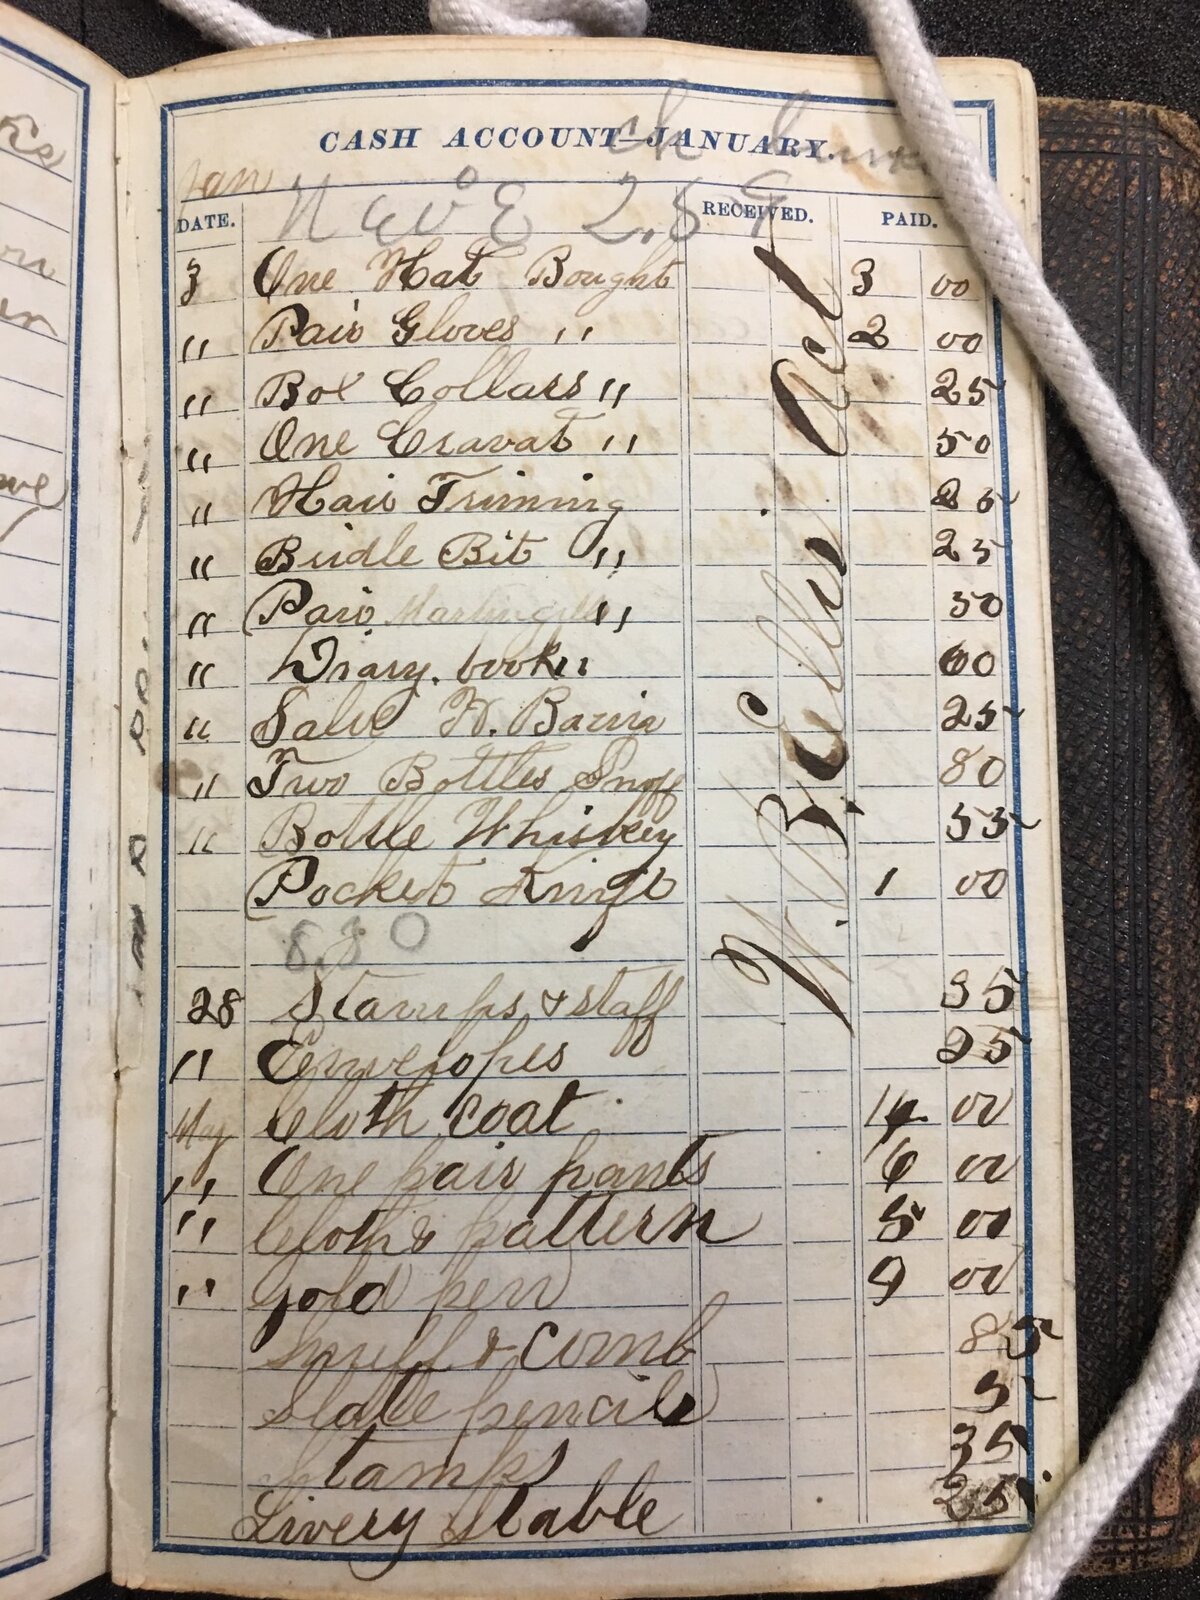 CASH ACCOUNT—JANUARY.
Jan
DATE. RECEIVED. PAID.
3 One Hat Bought 3 00
" Pair Gloves " 2 00
" Box Collars " 25
" One Cravat " 50
" Hair Triming 25
" Bridle Bit " 25
" Pair " 50
" Diary book " 60
" Salve 25
" Two Bottles Snuff 80
" Bottle Whiskey 55
Pocket Knife 1 00
8,80
28 Stamps & staff 35
" Envelopes 25
May Cloth coat 14 00
" One pair pants 6 00
" Cloth & pattern 5 00
" Gold pen 9 00
Snuff & Comb 85
Slate pencils 5
Stamps 35
Livery Stable 25
W. B. Ellis Act